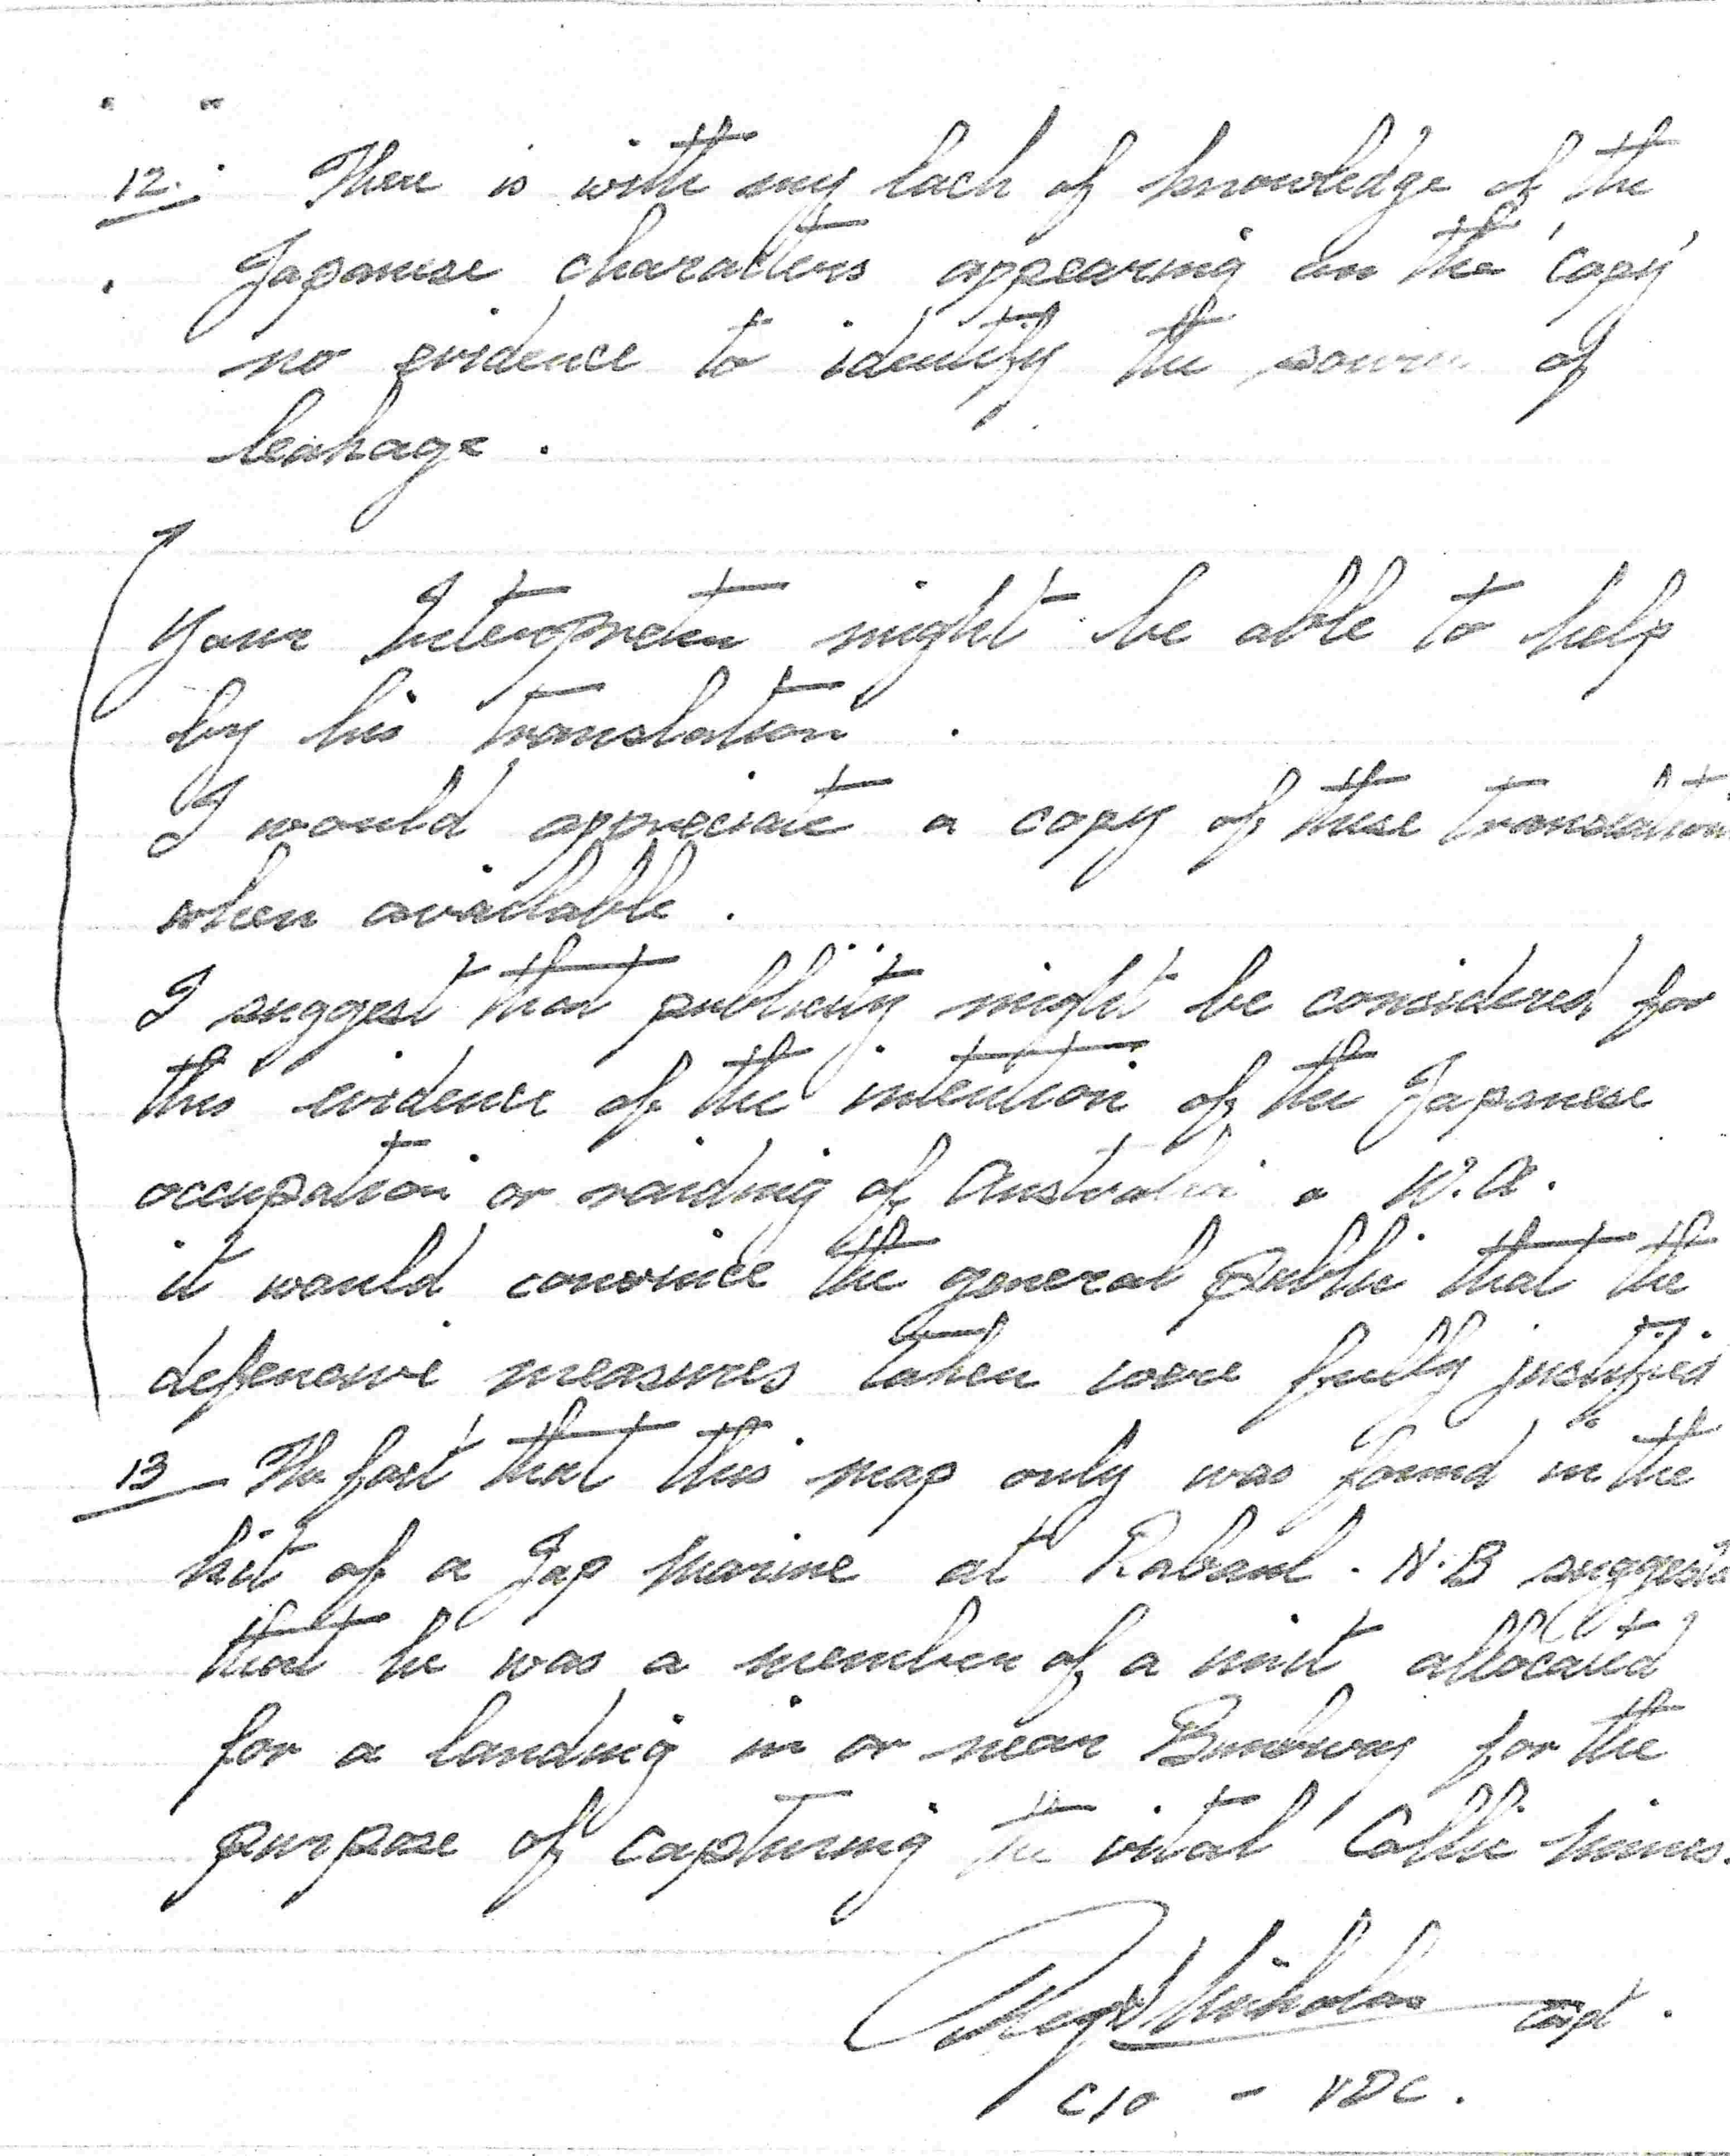 12. There is with my lack of knowledge of the
Japanese characters appearing on the 'copy'
no evidence to identify the source of
leakage.
Your Interpreter might be able to help
by his translation.
I would appreciate a copy of these translation
when available.
I suggest that publicity might be considered for
this evidence of the intention of the Japanese
occupation or raiding of Australia W.A.
it would convince the general public that the
defensive measures taken were fully justified
13 The fact that this map only was found in the
kit of a Jap Marine at Rabaul. N.B suggests
that he was a member of a unit allocated
for a landing in or near Bunbury for the
purpose of capturing the vital Collie mines.
Nicholas Capt.
CIO - VDC.